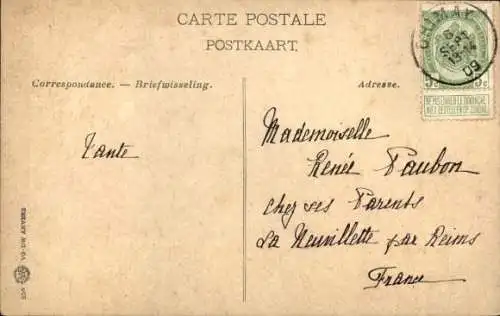 CARTE POSTALE
POSTKAART.
CHIMAY
8
SEPT
09
5c 5c
NE PAS LIVRER LE DIMANCHE
NIET BESTELLEN OP ZONDAG
Correspondance. — Briefwisseling.
Adresse.
Tante
Mademoiselle
Renée Paubon
chez ses Parents
La Neuvillette par Reims
France